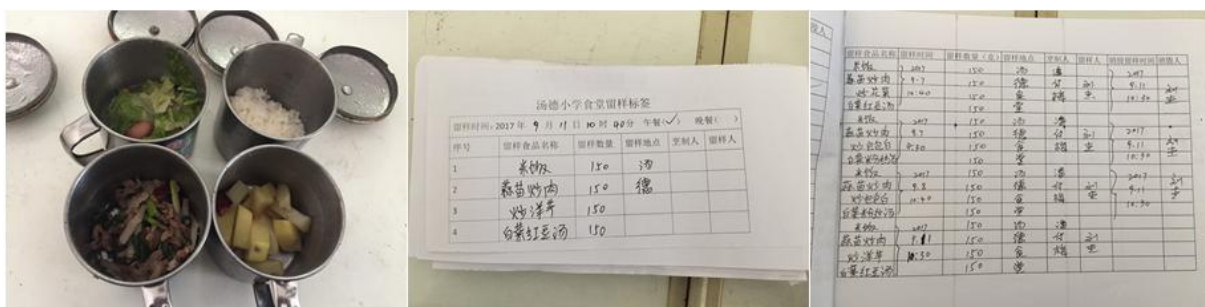 汤德小学食堂留样标签
留样时间:2017年 9月11日10时40分 午餐(✓) 晚餐( )
序号 留样食品名称 留样数量 留样地点 烹制人 留样人
1 米饭 150 汤
2 蒜苗炒肉 150 德
3 炒洋芋 150
4 白菜红豆汤 150
留样食品名称 留样时间 留样数量(克) 留样地点 烹制人 留样人 销毁留样时间 销毁人
米饭 2017 150 汤 2017
蒜苗炒肉 9.7 150 德 9.11
炒花菜 10:40 150 食 10:30
白菜红豆汤 150 堂
米饭 2017 150 汤
蒜苗炒肉 9.7 150 德 2017
炒包包白 150 食 9.11
150 堂 10:30
米饭 2017 150 汤 2017
蒜苗炒肉 9.8 150 德 9.11
炒包包白 10:40 150 食 10:30
150 堂
米饭 2017 150 汤
蒜苗炒肉 9.11 150 德
炒洋芋 150 食
白菜红豆汤 150 堂